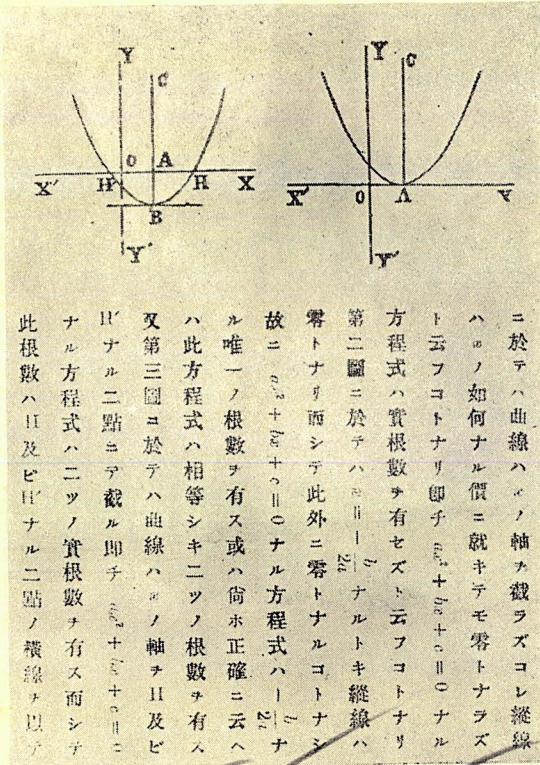 Y
C
O
A
X'
H'
H
X
B
Y'
Y
C
X'
O
A
Y'
ニ於テハ曲線ハxノ軸ヲ截ラズコレ縱線
ハxノ如何ナル價ニ就キテモ零トナラズ
ト云フコトナリ卽チ ax²+bx+c=0 ナル
方程式ハ實根數ヲ有セズト云フコトナリ
第二圖ニ於テハ x=-b/2a ナルトキ縱線ハ
零トナリ而シテ此外ニ零トナルコトナシ
故ニ ax²+bx+c=0 ナル方程式ハ -b/2a ナ
ル唯一ノ根數ヲ有ス或ハ尙ホ正確ニ云ヘ
ハ此方程式ハ相等シキ二ツノ根數ヲ有ス
又第三圖ニ於テハ曲線ハxノ軸ヲH及ビ
H'ナル二點ニテ截ル卽チ ax²+bx+c=
ナル方程式ハ二ツノ實根數ヲ有ス而シテ
此根數ハH及ビH'ナル二點ノ橫線ヲ以テ